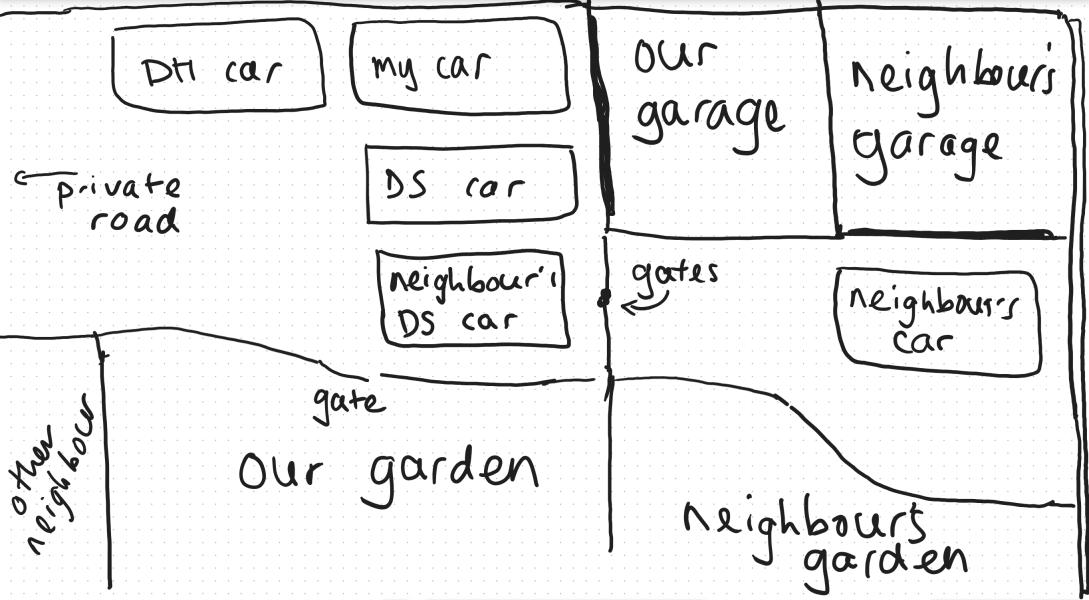 DH car
my car
our
garage
neighbour's
garage
private
road
DS car
neighbour's
DS car
gates
neighbour's
car
gate
other
neighbour
our garden
neighbour's
garden